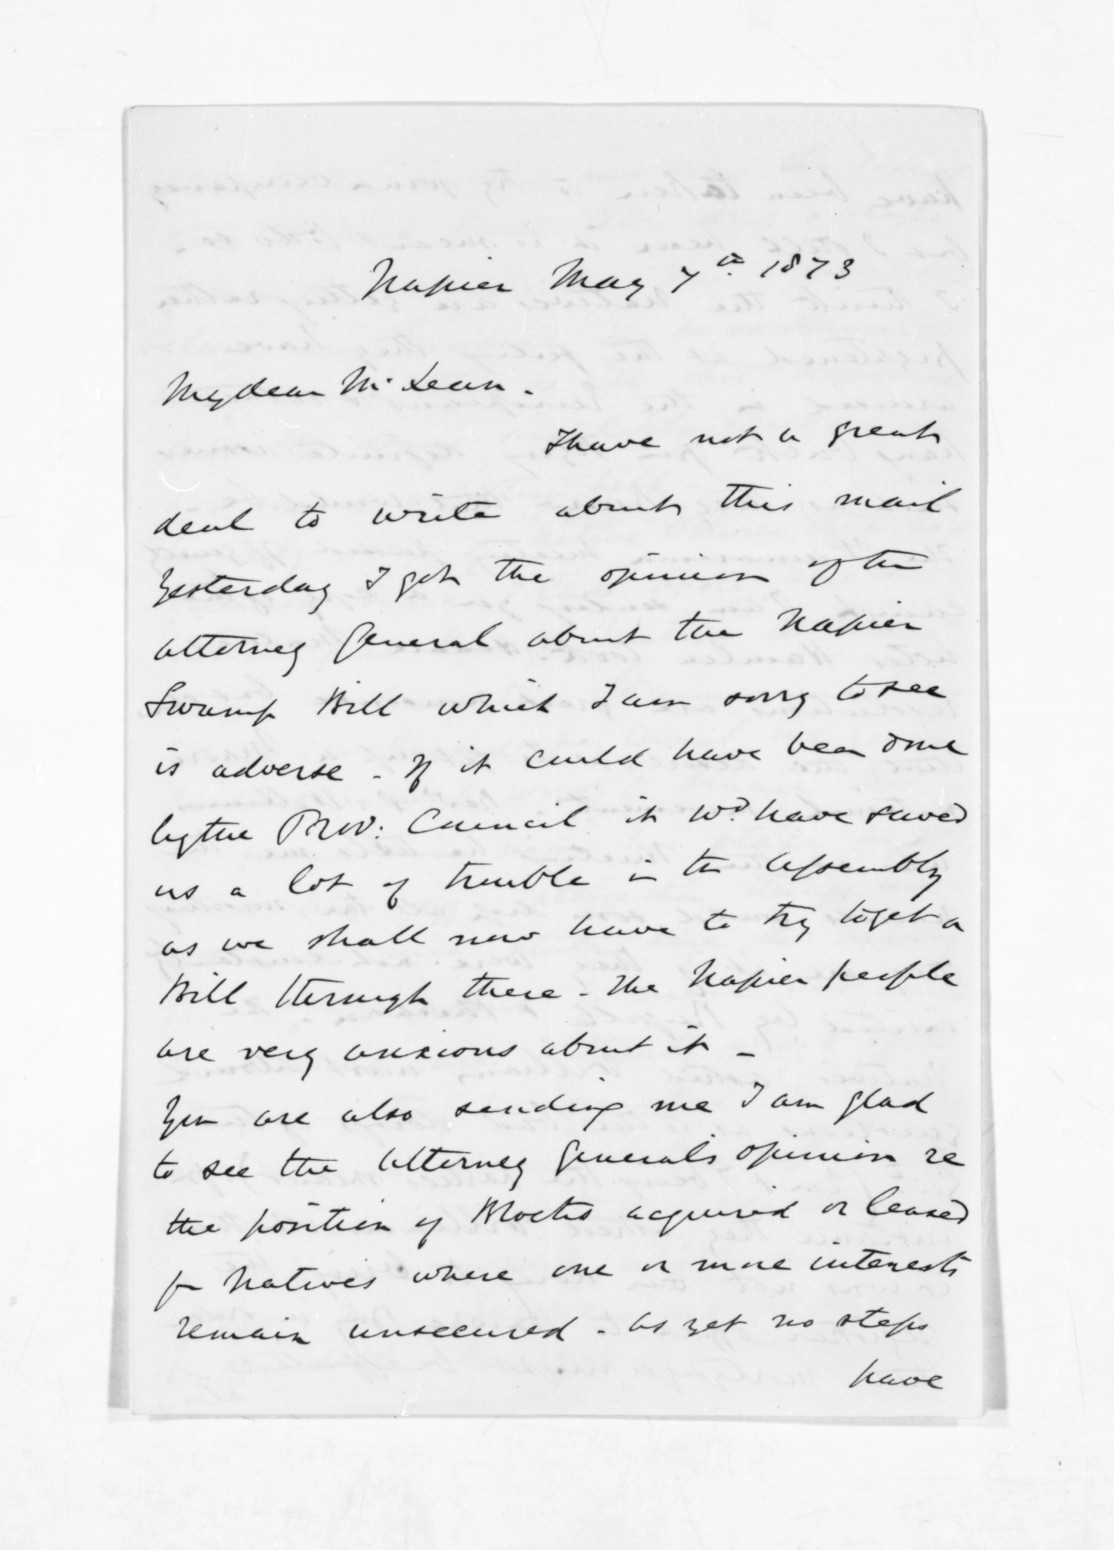 Napier May 7th 1873
My dear McLean.
I have not a great
deal to write about this mail
Yesterday I got the opinion of the
Attorney General about the Napier
Swamp Bill which I am sorry to see
is adverse - If it could have been done
by the Prov: Council it wd have saved
us a lot of trouble in the Assembly
as we shall now have to try to get a
Bill through there - The Napier people
are very anxious about it -
You are also sending me I am glad
to see the Attorney General's opinion re
the position of Blocks acquired or leased
fr Natives where one or more interests
remain unsecured - As yet no steps
have